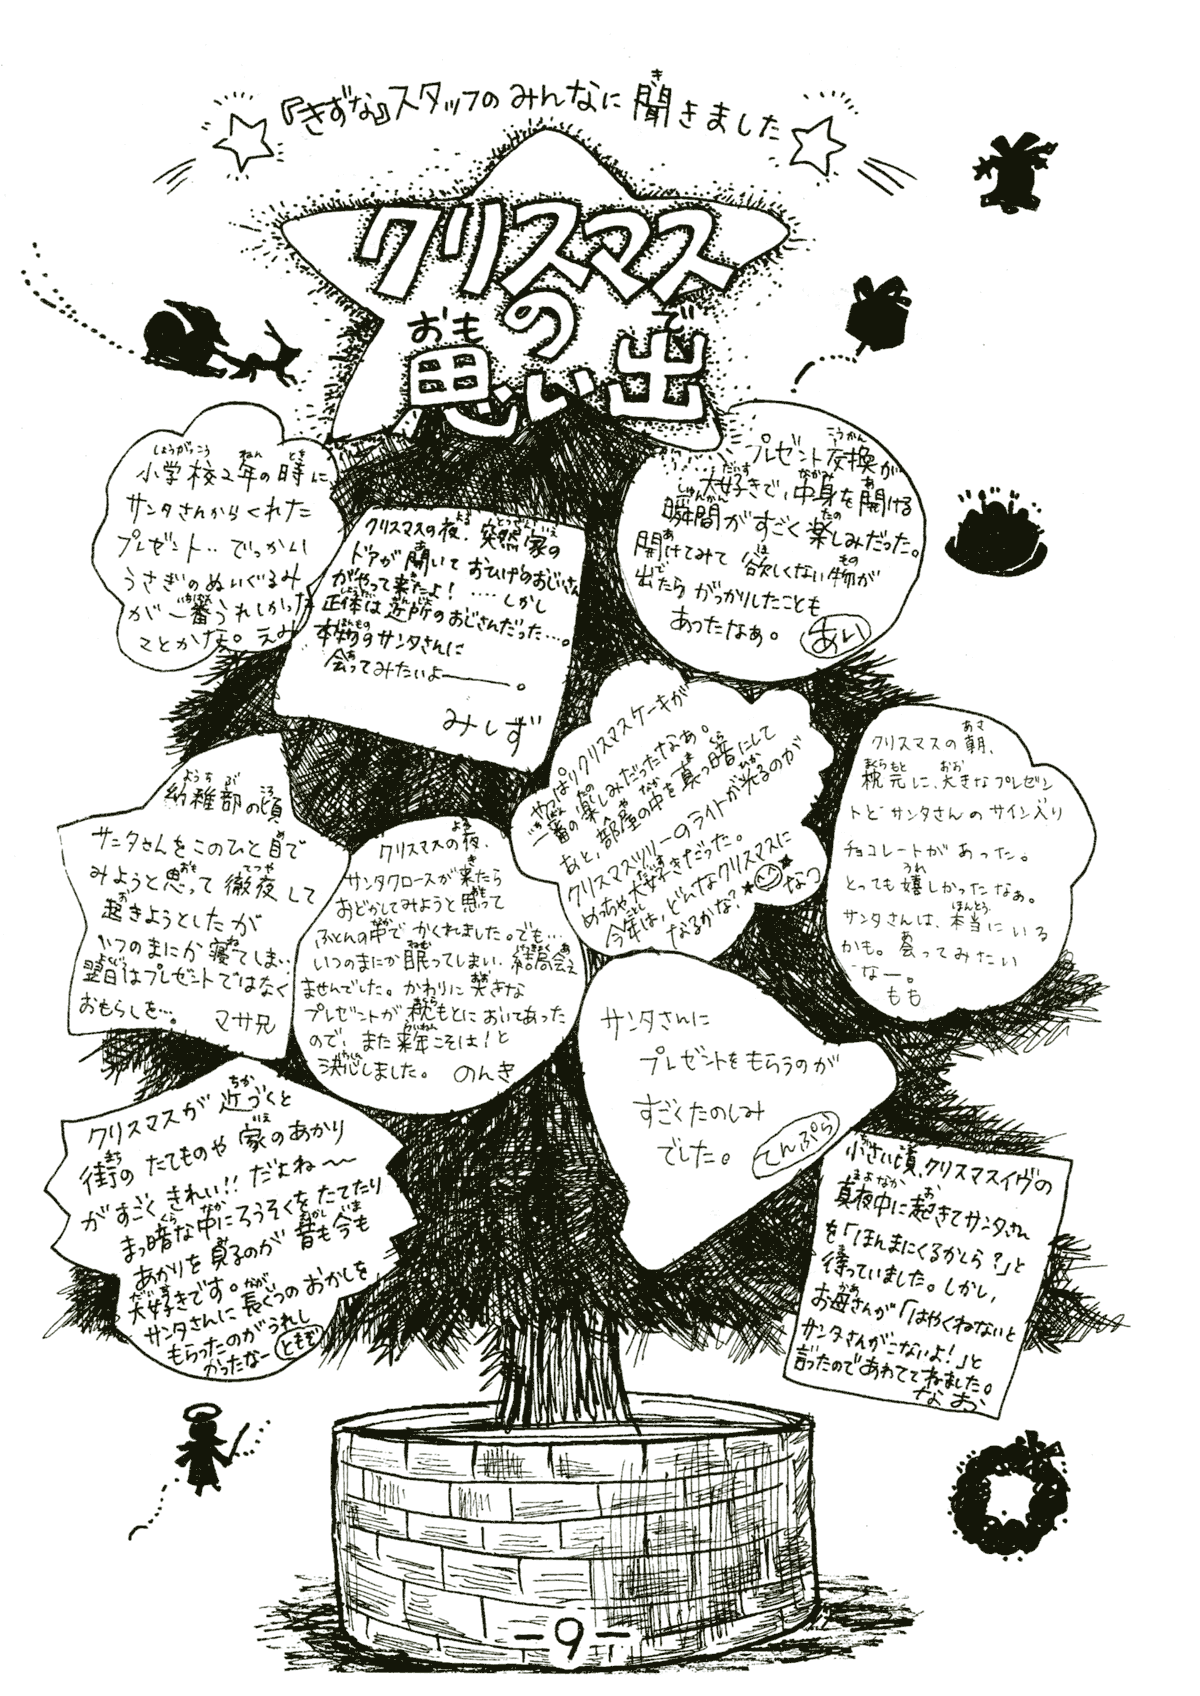 『きずな』スタッフのみんなに聞きました
クリスマス
の
思い出
小学校2年の時に
サンタさんからくれた
プレゼント‥でっかい
うさぎのぬいぐるみ
が一番うれしかった
ことかな。えみ
クリスマスの夜、突然家の
ドアが開いておひげのおじさん
がやって来たよ!‥‥しかし
正体は近所のおじさんだった…。
本物のサンタさんに
会ってみたいよ―――。
みしず
プレゼント交換が
大好きで、中身を開ける
瞬間がすごく楽しみだった。
開けてみて欲しくない物が
出たらがっかりしたことも
あったなぁ。あい
やっぱりクリスマスケーキが
一番の楽しみだったなぁ。
あと、部屋の中を真っ暗にして
クリスマスツリーのライトが光るのが
めっちゃ大好きだった。
今年は、どんなクリスマスに
なるかな?なつ
クリスマスの朝、
枕元に、大きなプレゼン
トとサンタさんのサイン入り
チョコレートがあった。
とっても嬉しかったなぁ。
サンタさんは、本当にいる
かも。会ってみたい
なー。
もも
幼稚部の頃
サンタさんをこのひと目で
みようと思って徹夜して
起きようとしたが
いつのまにか寝てしまい、
翌日はプレゼントではなく
おもらしを…。マサ兄
クリスマスの夜、
サンタクロースが来たら
おどかしてみようと思って
ふとんの中でかくれました。でも…
いつのまにか眠ってしまい、結局会え
ませんでした。かわりに大きな
プレゼントが枕もとにおいてあった
ので、また来年こそは!と
決心しました。のんき
サンタさんに
プレゼントをもらうのが
すごくたのしみ
でした。てんぷら
クリスマスが近づくと
街のたてものや家のあかり
がすごくきれい!!だよね〜
まっ暗な中にろうそくをたてたり
あかりを見るのが昔も今も
大好きです。
サンタさんに長ぐつのおかしを
もらったのがうれし
かったなーともぞ
小さい頃、クリスマスイヴの
真夜中に起きてサンタさん
を「ほんまにくるかしら?」と
待っていました。しかし、
お母さんが「はやくねないと
サンタさんがこないよ!」と
言ったのであわててねました。
なお
-9-